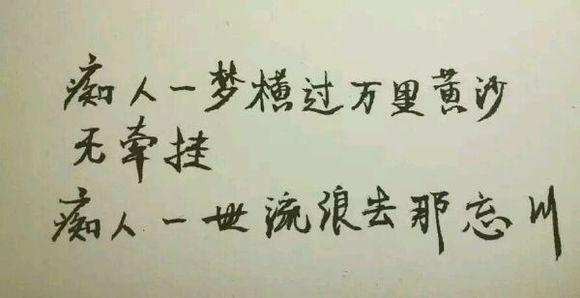 痴人一梦横过万里黄沙
无牵挂
痴人一世流浪去那忘川